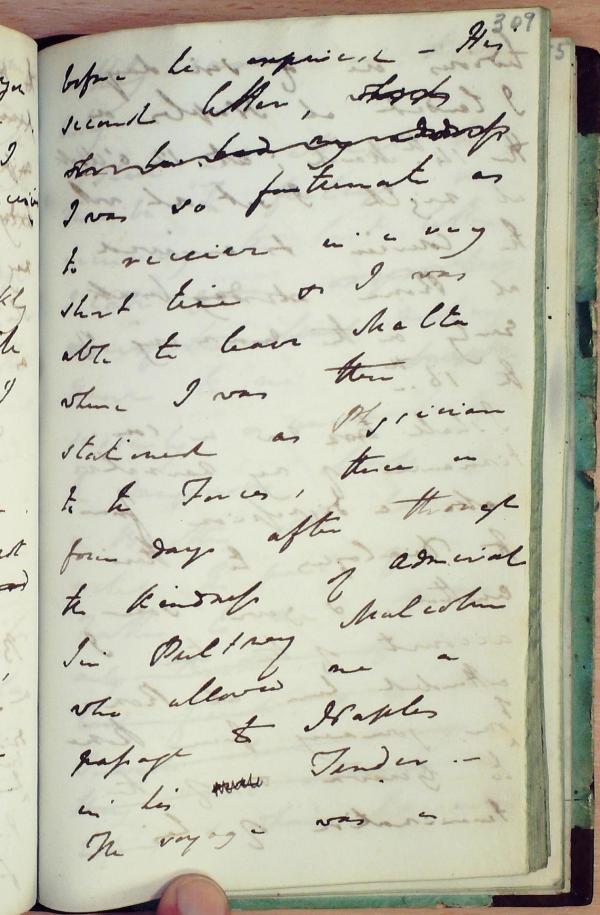 309
before he expired – His
second letter, which
I was so fortunate as
to receive in a very
short time & I was
able to leave Malta
where I was then
stationed as Physician
to the Forces, three or
four days after through
the kindness of Admiral
Sir Pultney Malcolm
who allowed me a
passage to Naples
in his Tender –
The voyage was a